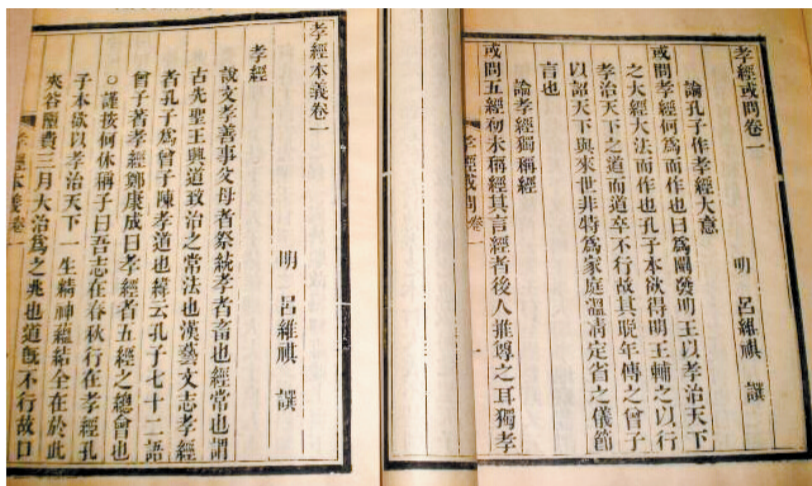 孝經或問卷一
明 呂維祺 譔
論孔子作孝經大意
或問孝經何爲而作也曰爲闡發明王以孝治天下
之大經大法而作也孔子本欲得明王輔之以行
孝治天下之道而道卒不行故其晚年傳之曾子
以詔天下與來世非特爲家庭溫凊定省之儀節
言也
論孝經獨稱經
或問五經初未稱經其言經者後人推尊之耳獨孝
孝經或問卷一
孝經本義卷一
明 呂維祺 譔
孝經
說文孝善事父母者祭統孝者畜也經常也謂
古先聖王興道致治之常法也漢藝文志孝經
者孔子爲曾子陳孝道也緯云孔子七十二語
曾子著孝經鄭康成曰孝經者五經之總會也
○謹按何休稱子曰吾志在春秋行在孝經孔
子本欲以孝治天下一生精神蘊結全在於此
夾谷郈費三月大治爲之兆也道旣不行故口
孝經本義卷一